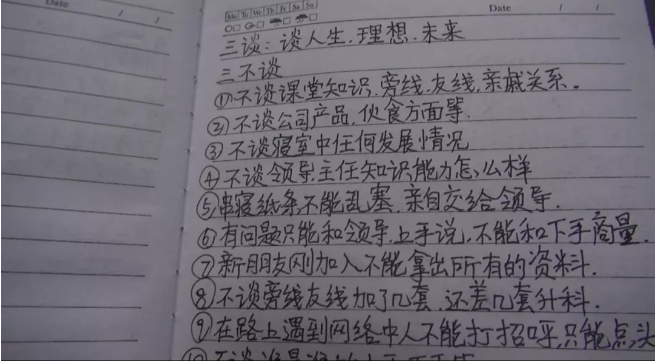 Date / /
Mo Tu We Th Fr Sa Su
Date / /
三谈：谈人生.理想.未来
三不谈
①不谈课堂知识.旁线.友线.亲戚关系。
②不谈公司产品.伙食方面等.
③不谈寝室中任何发展情况
④不谈领导主任知识能力怎么样
⑤串寝纸条不能乱塞.亲自交给领导.
⑥有问题只能和领导.上手说,不能和下手商量.
⑦新朋友刚加入不能拿出所有的资料.
⑧不谈旁线友线加了几套.还差几套升科.
⑨在路上遇到网络中人不能打招呼,只能点头
⑩不谈谁是谁的上手下手